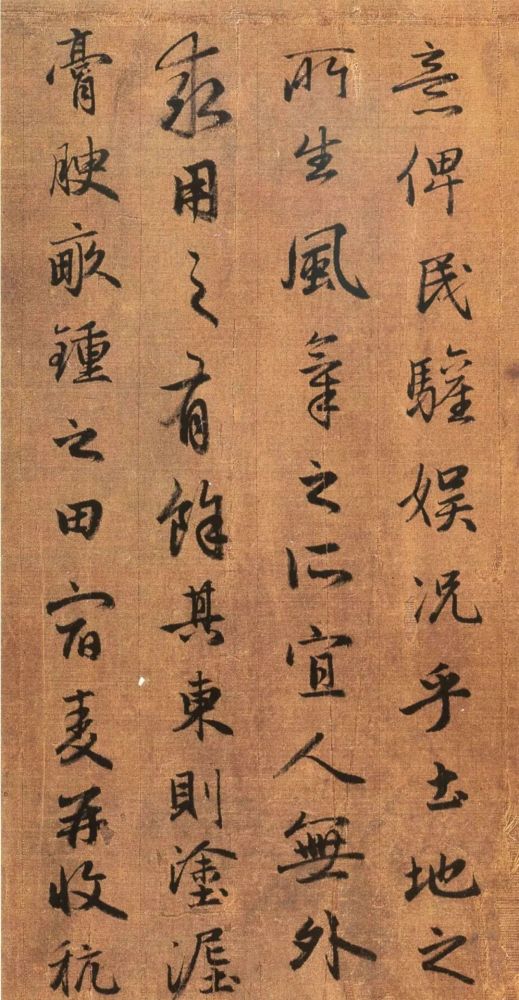 意俾民驩娱况乎土地之
所生風氣之所宜人無外
求用之有餘其東則塗泥
膏腴畝鍾之田宿麦再收秔